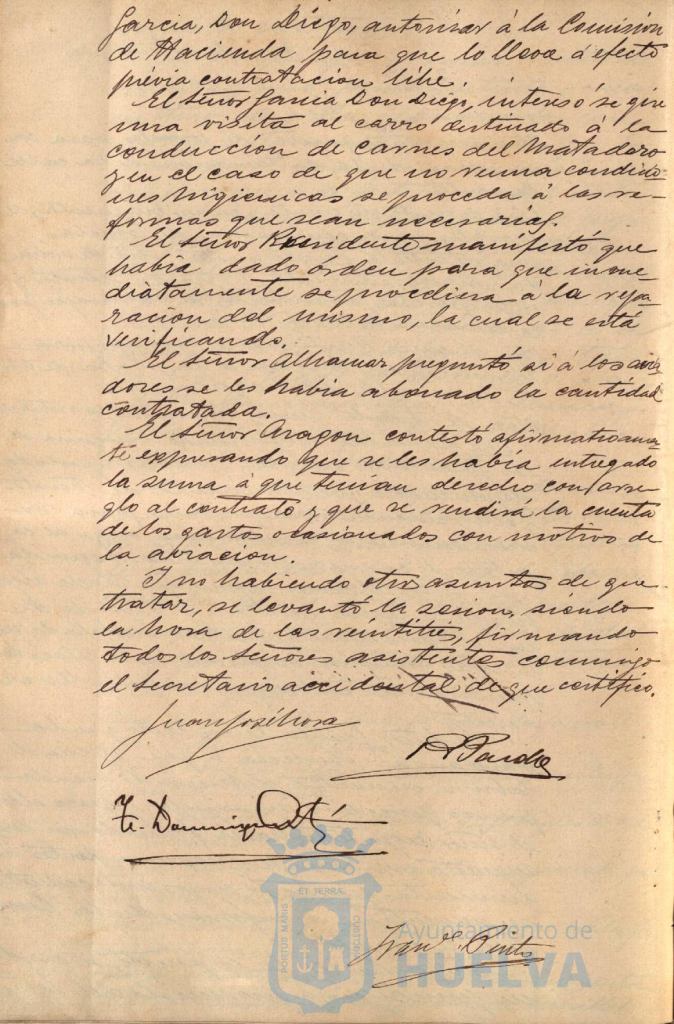 Garcia, Don Diego, autorizar á la Comisión
de Hacienda para que lo lleve á efecto
prévia contratacion libe.
El Señor Garcia Don Diego, interesó se gire
una visita al carro destinado á la
conducción de carnes del Matadero
y en el caso de que no reuna condicio-
nes higienicas se proceda á las re-
formas que sean necesarias.
El Señor Presidente manifestó que
habia dado órden para que inme
diatamente se procediera á la repa-
racion del mismo, la cual se está
verificando.
El Señor Alhamar preguntó si á los avia
dores se les habia abonado la cantidad
contratada.
El Señor Aragon contestó afirmativamen
te expresando que se les había entregado
la suma a que tenian derecho con arre-
glo al contrato y que se rendirá la cuenta
de los gastos ocasionados con motivo de
la aviacion.
Y no habiendo otros asuntos de que
tratar, se levantó la sesion, siendo
la hora de las veintitres, firmando
todos los señores asistentes conmigo
el Secretario accidental de que certifico.
Juan José
Pardo
Fran.co
PORTUS MARIS ET TERRÆ CUSTODIA
Ayuntamiento de
HUELVA